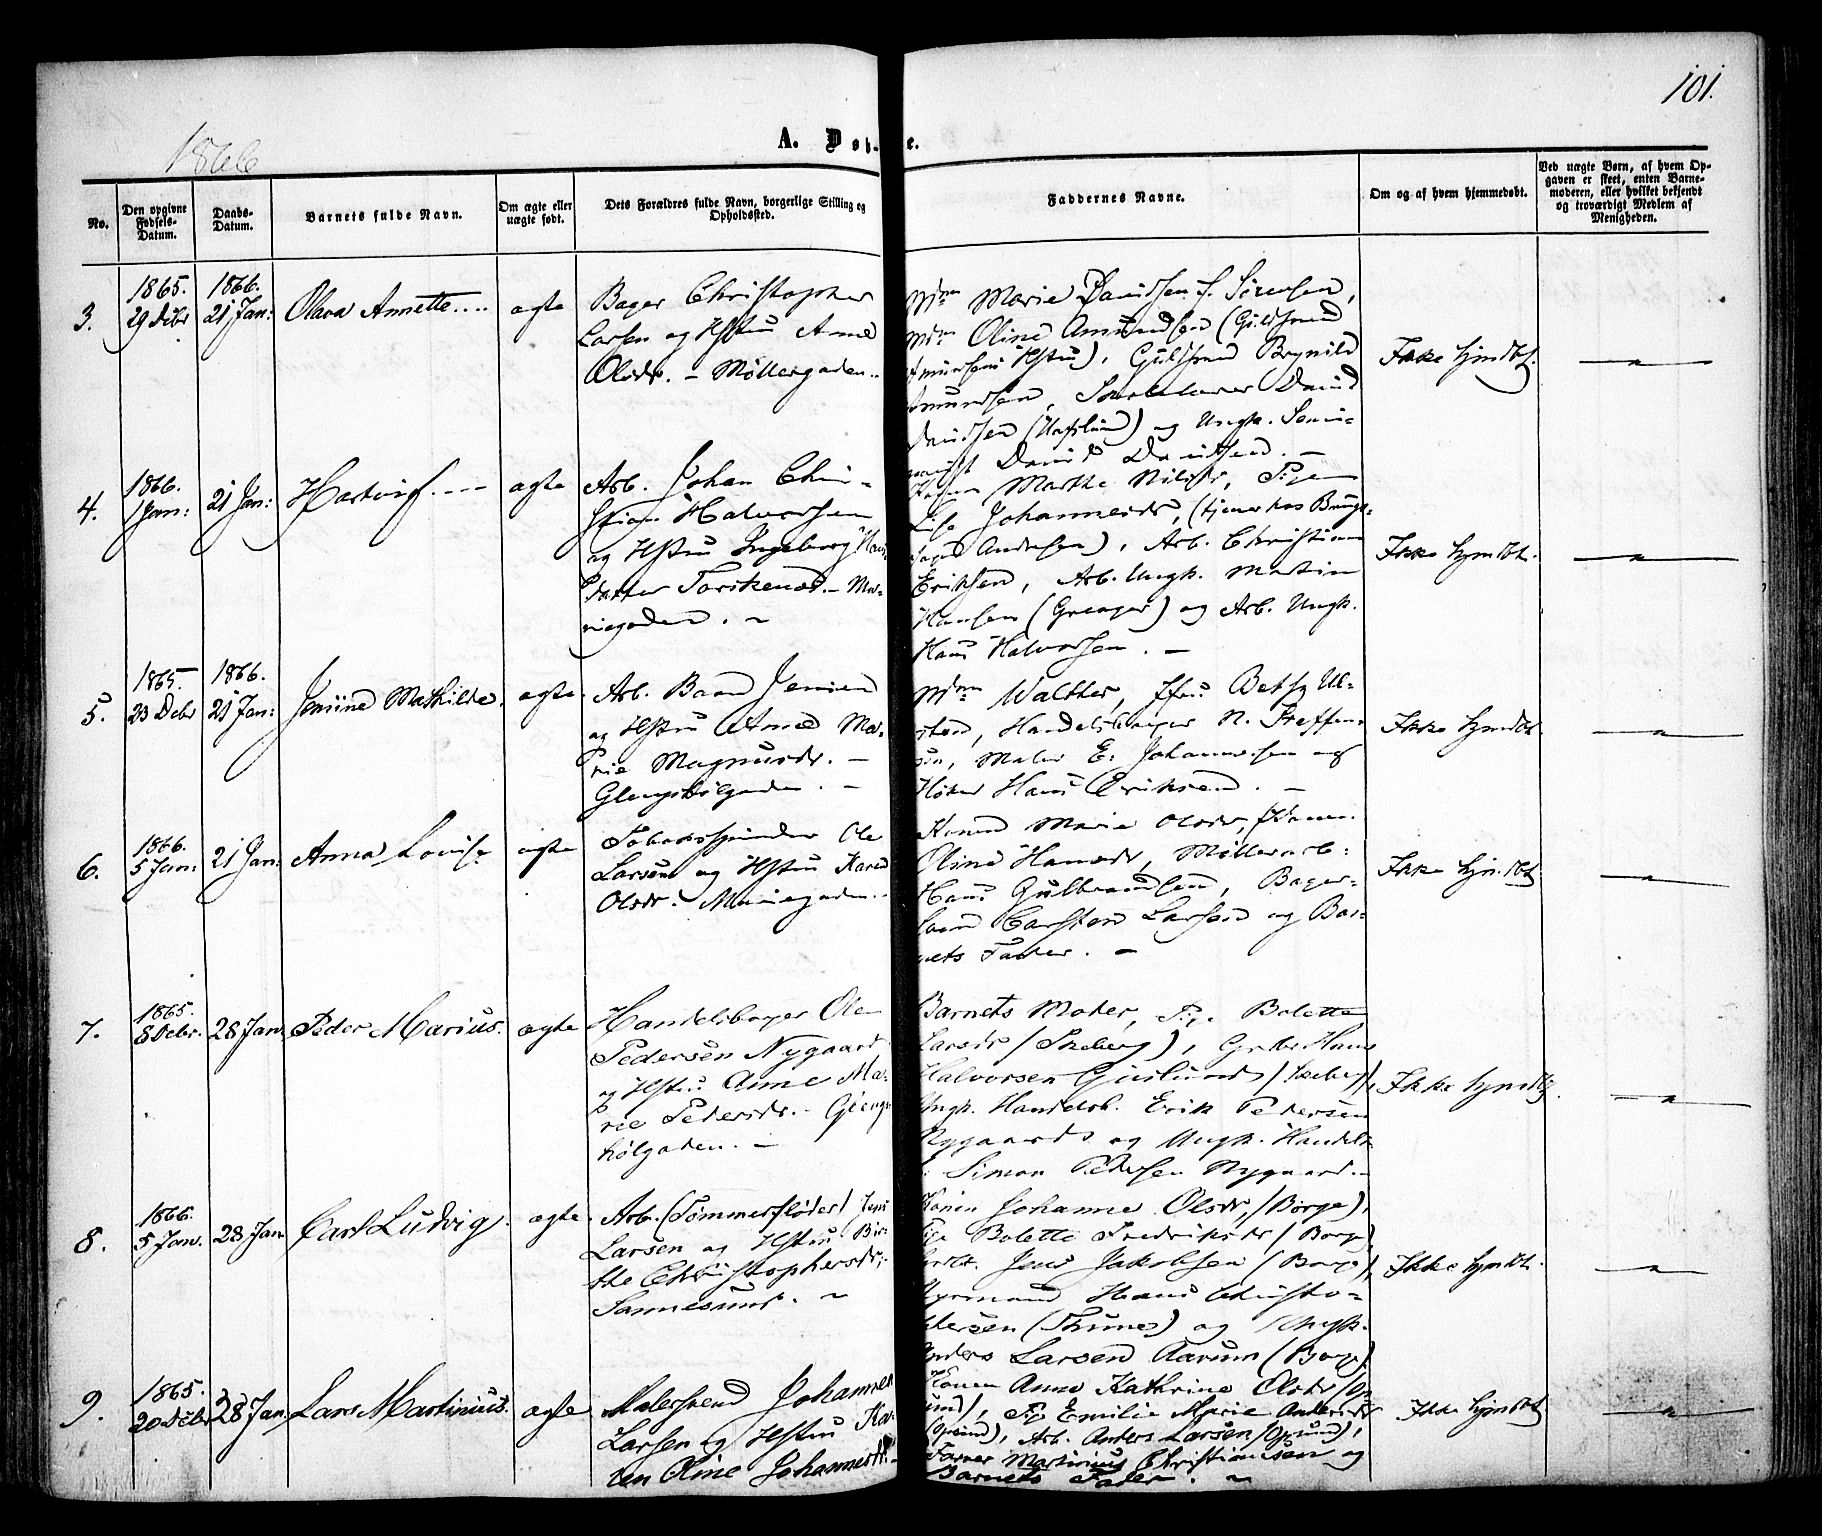 101.
1866
A. Døb-e.
No.
Den opgivne Fødsels-Datum.
Daabs-Datum.
Barnets fulde Navn.
Om ægte eller uægte født.
Dets Forældres fulde Navn, borgerlige Stilling og Opholdssted.
Faddernes Navne.
Om og af hvem hjemmedøbt.
Ved uægte Børn, af hvem Opgaven er skeet, enten Barnemoderen, eller hvilket bekjendt og troværdigt Medlem af Menigheden.
3.
1865. 29 Debr
1866. 21 Jan:
Olava Annette
ægte
Bager Christopher
Larsen og Hstru Anne
Olsdr. - Møllergaden.
Mdm Marie Davidsen f. Sørensen,
Mdm Oline Amundsen (Guldsmed
Amundsens Hstru), Guldsmed Brynild
Amundsen, David
Davidsen (Hafslund) og Ungk.
David Davidsen. -
Ikke hjmdbt.
4.
1866. 1 Jan:
21 Jan:
Hartvig
ægte
Arb. Johan Chri-
stian Halvorsen
og Hstru Ingeborg
datter Torskenæs. - Ma-
riegaden. -
Konen Marthe Nilsdr, Pigen
Johannesdr, (tjener hos
Andersen), Arb. Christian
Eriksen, Arb. Ungk. Martin
Hansen (Greager) og Arb. Ungk.
Hans Halvorsen. -
Ikke hjmdbt.
5.
1865. 23 Debr
1866. 21 Jan:
Jensine Mathilde
ægte
Arb. Jensen
og Hstru Anne Ma-
rie Magnusdr. -
Glengshølgaden. -
Mdm Walther, Jfru Betsy
Handelsborger N. Steffen-
sen, Maler E. Johannesen og
Høker Hans Eriksen. -
Ikke hjmdbt.
6.
1866. 5 Jan:
21 Jan:
Anna Lovise
ægte
Tobaksspinder Ole
Larsen og Hstru Karen
Olsdr. Mariegaden.
Konen Marie Olsdr, Konen
Oline Hansdr, Møllerarb:
Hans Gulbrandsen, Bager-
svend Carsten Larsen og Bar-
nets Fader. -
Ikke hjmdbt.
7.
1865. 8 Debr.
28 Jan
Peder Marius.
ægte
Handelsborger Ole
Pedersen Nygaard
og Hstru Anne Ma-
rie Pedersdr. - Glengs-
hølgaden. -
Barnets Moder, Pi. Bolette
Larsdr (Skeberg), Grdbr Hans
Halvorsen Gjeslund (Skeberg),
Ungk. Handelsb. Erik Pedersen
Nygaard og Ungk. Handels-
Simon Pedersen Nygaard. -
Ikke hjmdbt.
8.
1866. 5 Jan.
28 Jan
Carl Ludvig.
ægte
Arb. (Tømmerfløder) Jens
Larsen og Hstru Bir-
the Christophersdr,
Sannesund. -
Konen Johanne Olsdr, (Borge),
Pige Bolette Fredriksdr (Borge)
Jens Jakobsen (Borge),
Hans Christo-
phersen (Thune) og Ungk.
Anders Larsen Aarum (Borge).
Ikke hjmdbt.
9.
1865. 20 Debr
28 Jan
Lars Martinius.
ægte
Malersvend Johannes
Larsen og Hstru Ka-
ren Oline Johannesdr. -
Konen Anne Kathrine Olsdr (Op-
sund), Pi. Emilie Marie Andersdr
(Opsund), Arb. Anders Larsen (Opsund),
Farver Martinius Christiansen og
Barnets Fader. -
Ikke hjmdbt